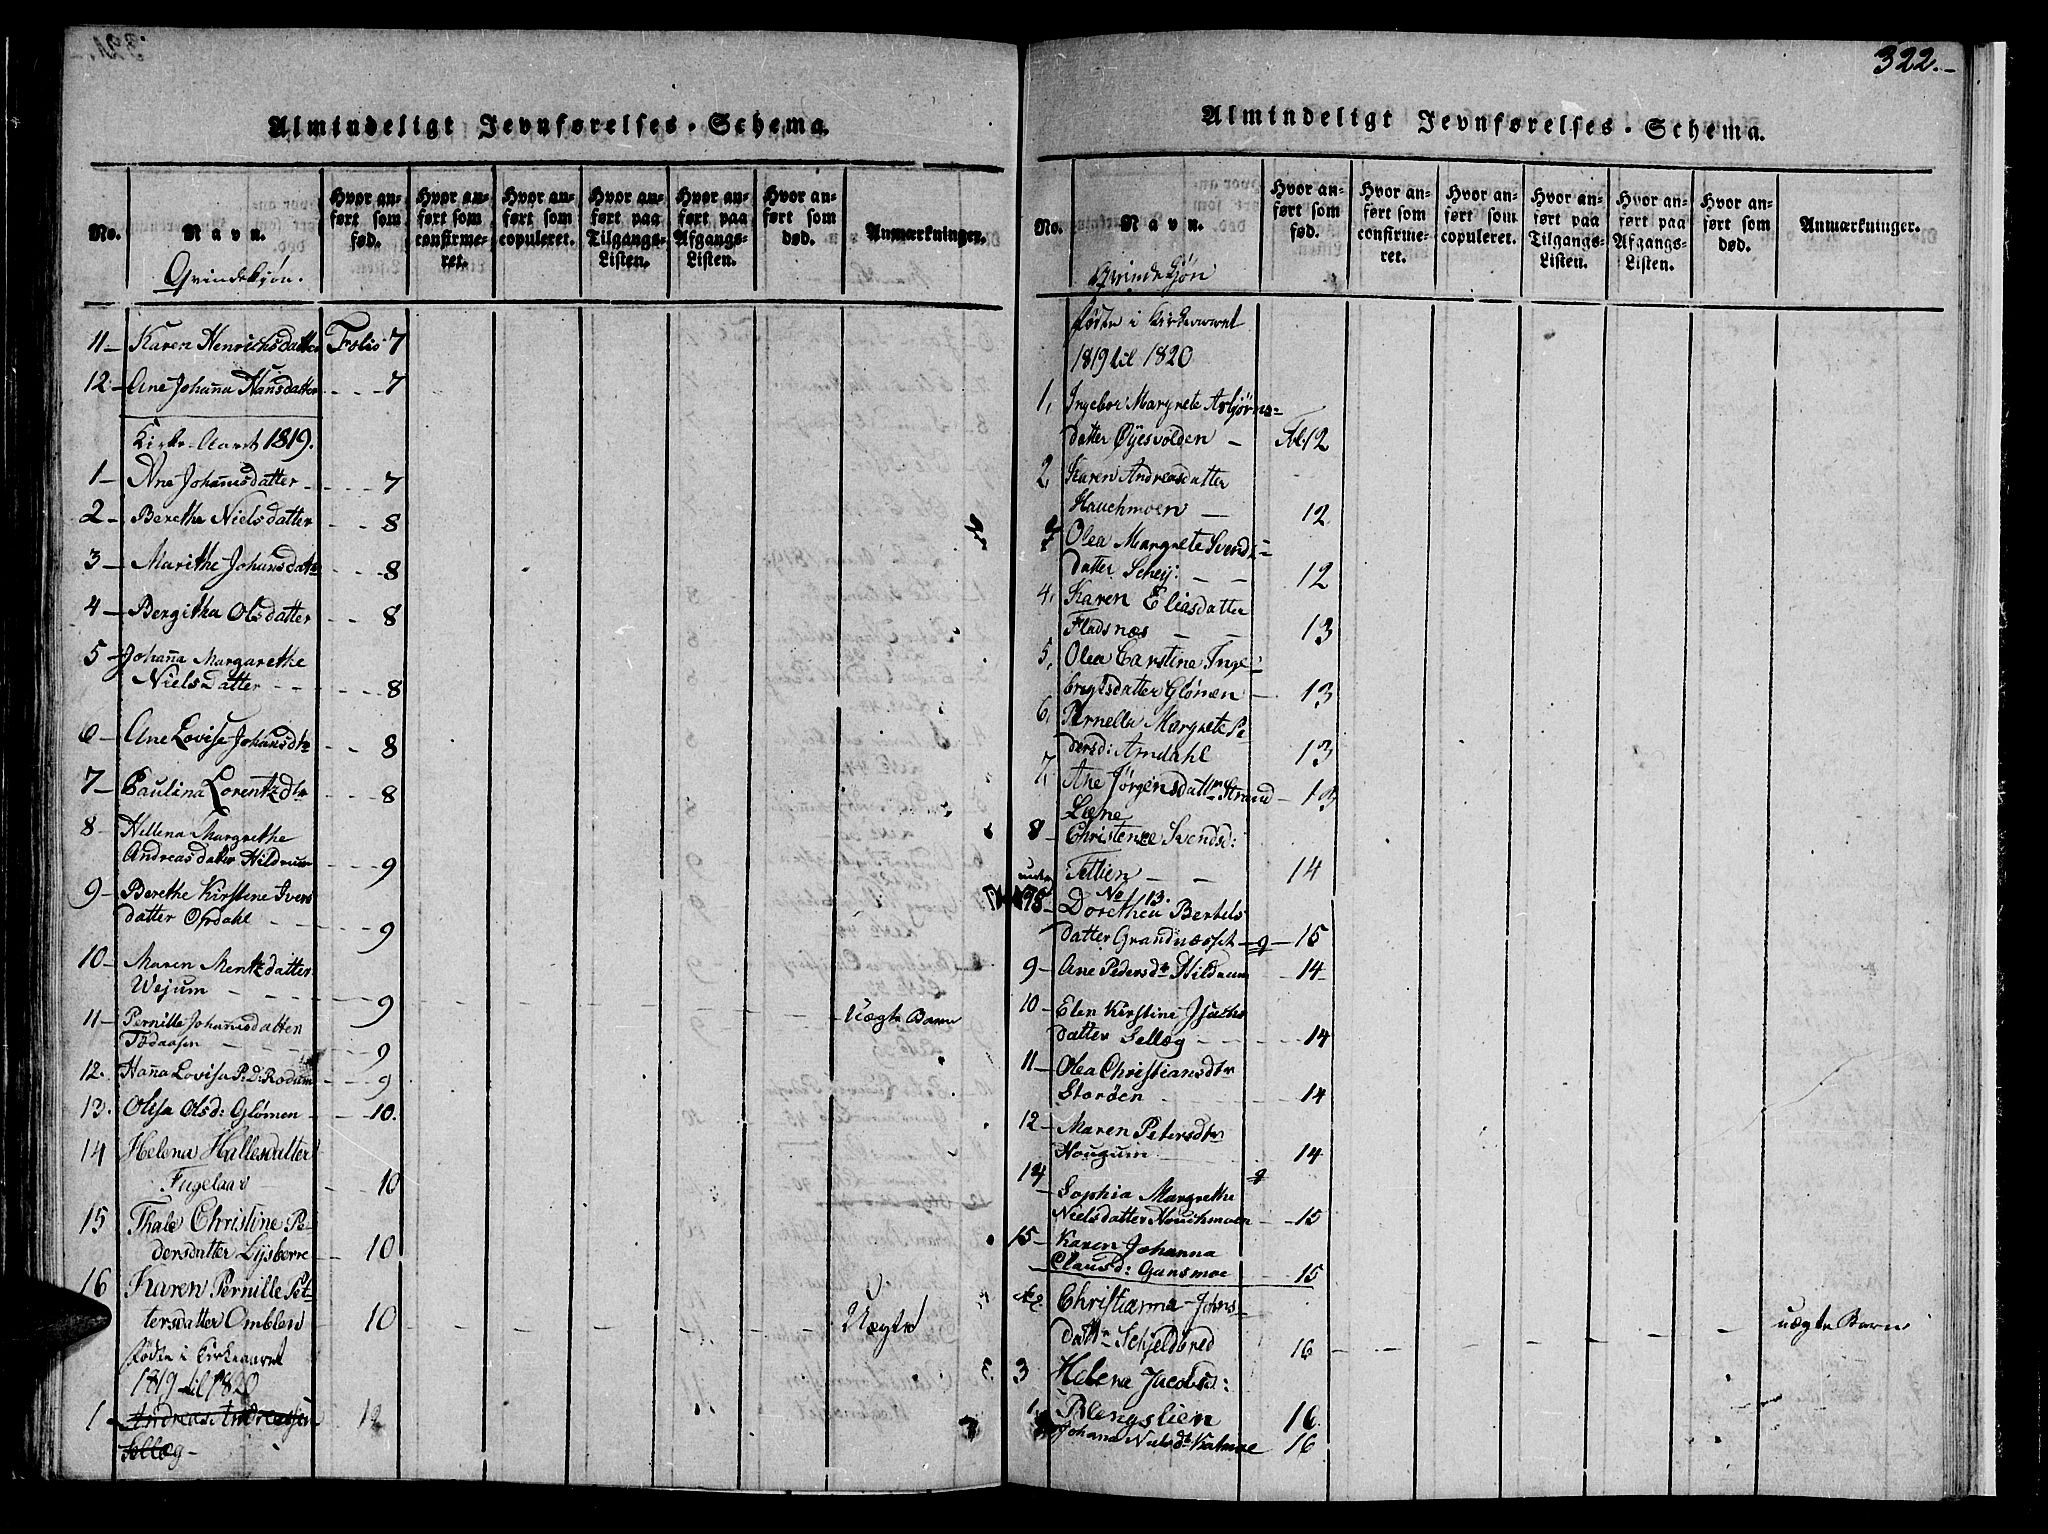 Almindeligt Jevnførelses-Schema.
No.
Navn.
Hvor an-
ført som
fød.
Hvor an-
ført som
confirme-
ret.
Hvor an-
ført som
copuleret.
Hvor an-
ført paa
Tilgangs-
Listen.
Hvor an-
ført paa
Afgangs-
Listen.
Hvor an-
ført som
død.
Anmærkninger.
Qvindekjøn.
11 - Karen Henrichsdatter Folio 7
12 - Ane Johanna Hansdatter - - - 7
Kirke-Aaret 1819.
1 - Ane Johannsdatter - - - 7
2 - Berethe Nielsdatter - - 8
3 - Marithe Johansdatr - - - 8
4 - Bergitha Olsdatter - - 8
5 - Johanna Margarethe
Nielsdatter - - - - - 8
6 - Ane Lovise Johansdtr - - 8
7 - Paulina Lorentzdtr - - 8
8 - Hellena Margrethe
Andreasdatter Hildrum - - 9
9 - Berethe Kirstine Ivers
datter Ofrdahl - - - - 9
10 - Maren Mentzdatter
Wejum - - - - 9
11 - Pernille Johannsdatter Uægte Barn
- - - - 9
12. Hanna Lovisa P.D: Rodum - - 9
13. Olisa Olsd: Glømen - - - 10.
14 Helena Hallesdatter
Fugelaas - - 10
15 Thale Christine Pe-
dersdatter Lysberre - 10
16 Karen Pernille Pet-
tersdatter Omblen - 10 - - - - - - Uægte
fødte i Kirkeaaret
1819 til 1820
1 - Andreas Andreassen 12
Sellæg -
322. -
Almindeligt Jevnførelses-Schema.
No.
Navn.
Hvor an-
ført som
fød.
Hvor an-
ført som
confirme-
ret.
Hvor an-
ført som
copuleret.
Hvor an-
ført paa
Tilgangs-
Listen.
Hvor an-
ført paa
Afgangs-
Listen.
Hvor an-
ført som
død.
Anmærkninger.
Qvinde Kjøn
fødte i Kirkeaaret
1819 til 1820
1, Ingebor Margrete Asbjørns-
datter Øyesvolden - Fol: 12
2, Karen Andreasdatter
Hauchmoen - 12
Olea Margrete Svends-
datter Schej: - - 12
4, Karen Eliasdatter
Fladsnæs - - 13
5, Olea Carstine Inge-
brigtsdatter Glömen - 13
6, Pernella Margrete Pe-
dersd: Amdahl 13
7, Ane Jørgensdattr Strand - 13
Læne
8 - Christence Svendsd:
Tetlien - - 14
under No 13.
Dorethea Bertels
datter Grandnæsset - 15
9 - Ane Pedersdtr Hildrum - 14 -
10 - Elen Kirstine Isachs
datter Sellæg - - - - 14
11 - Olea Christiansdtr
Storöen - - - 14
12 - Maren Petersdtr
Hougum - - - 14
14 - Sophia Margrethe
Nielsdatter Houchmoen - 15
15 - Karen Johanna
Clausd: Gansmoe - - 15
Christianna Johns-
dattr Schjeldbred 16 - - - - - - uægte Barn
3 Helena Jacobsd:
Blengslien 16
1, Johana Nielsdtr Kalmoe 16